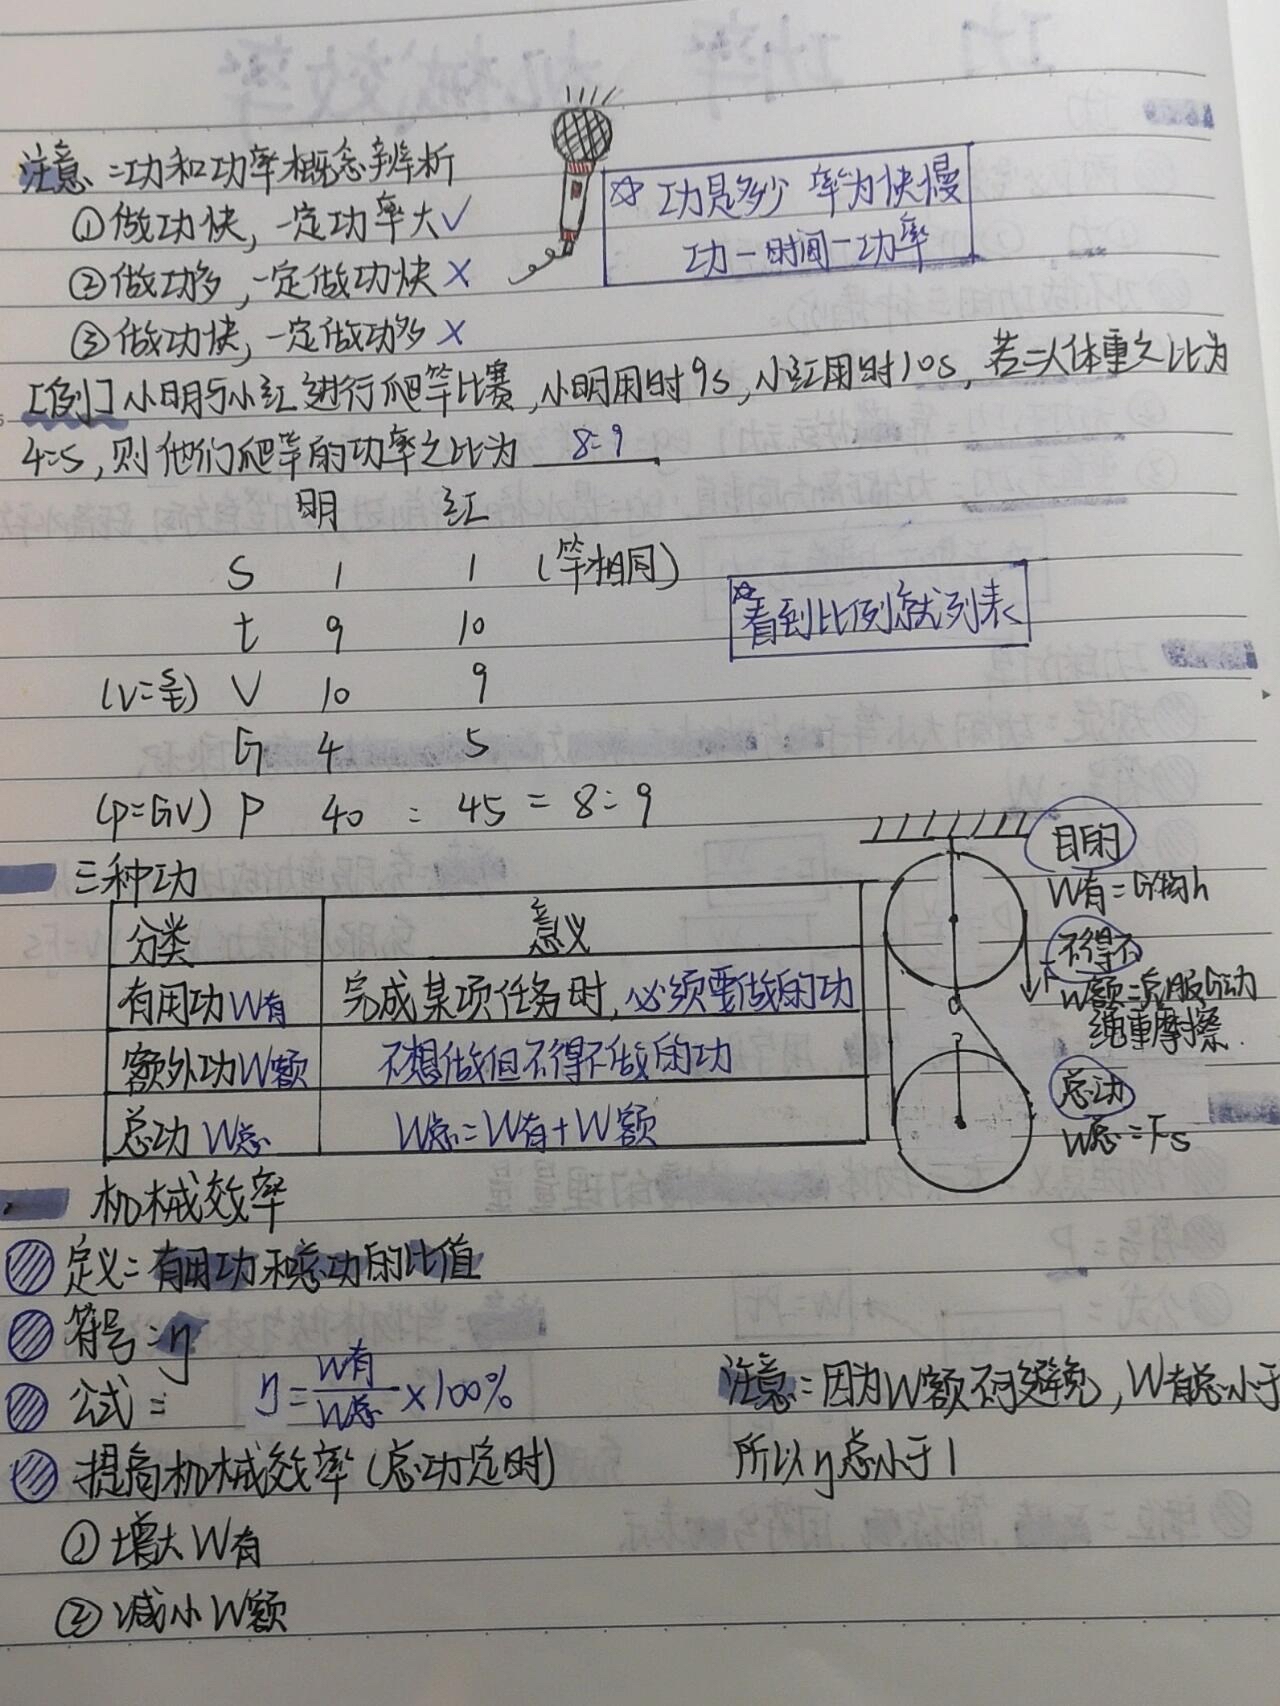 注意:功和功率概念辨析
①做功快,一定功率大✓
②做功多,一定做功快×
③做功快,一定做功多×
☆ 功是多少 率为快慢
功-时间-功率
[例]小明与小红进行爬竿比赛,小明用时9s,小红用时10s,若二人体重之比为
4:5,则他们爬竿的功率之比为 8:9
明 红
S 1 1 (竿相同)
t 9 10
☆看到比例就列表
(v=s/t) V 10 9
G 4 5
(P=GV) P 40 : 45 = 8:9
三种功
分类 意义
有用功W有 完成某项任务时,必须要做的功
额外功W额 不想做但不得不做的功
总功 W总 W总=W有+W额
目的
W有=G物h
不得不
F
W额:克服G动
绳重摩擦
总功
W总=Fs
机械效率
定义:有用功和总功的比值
符号:η
公式: η=W有/W总×100%
注意:因为W额不可避免,W有总小于
所以η总小于1
提高机械效率(总功定时)
①增大W有
②减小W额